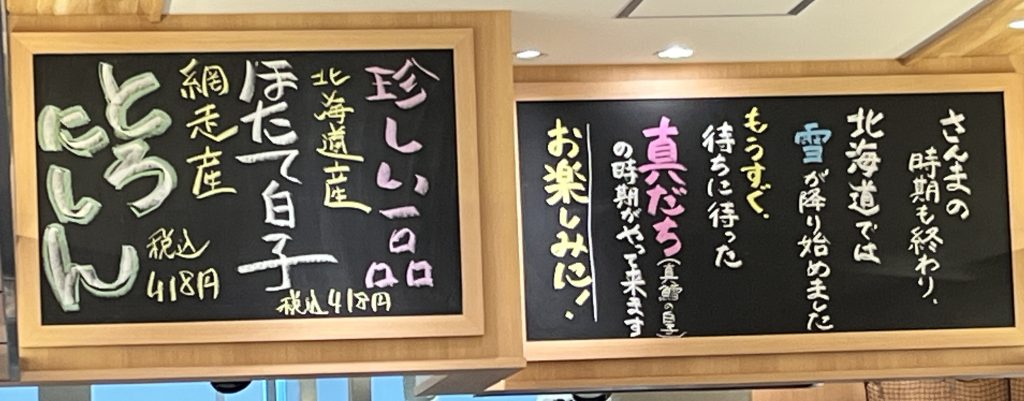 珍しい一品
北海道産
ほたて白子
税込418円
網走産
とろ
にしん
税込
418円
さんまの
時期も終わり、
北海道では
雪が降り始めました
もうすぐ、
待ちに待った
真だち(真鱈の白子)
の時期がやって来ます
お楽しみに！